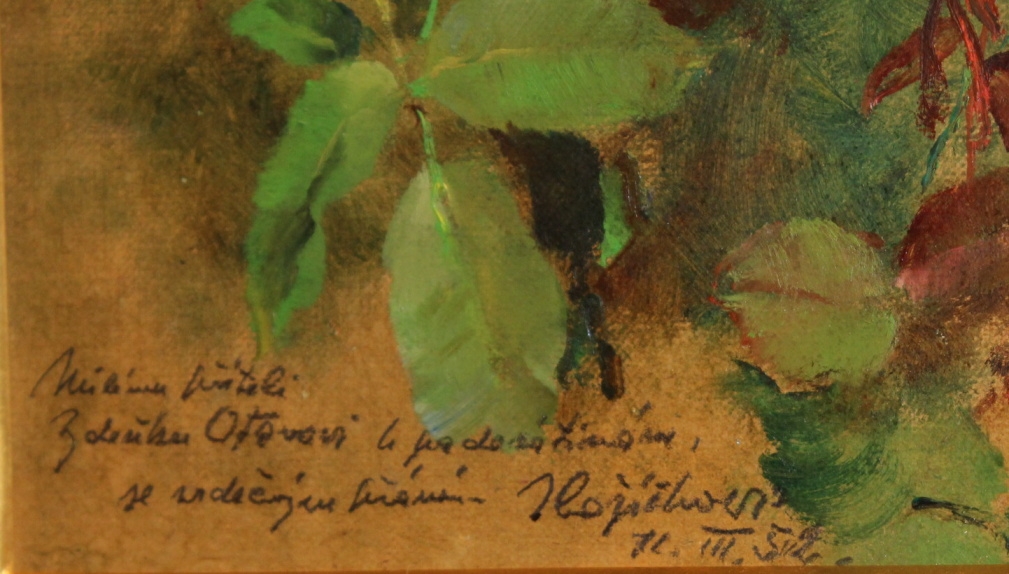 Milému příteli
Zdeňku Otavovi k padesátinám,
se srdečným přáním
11. III. 52.